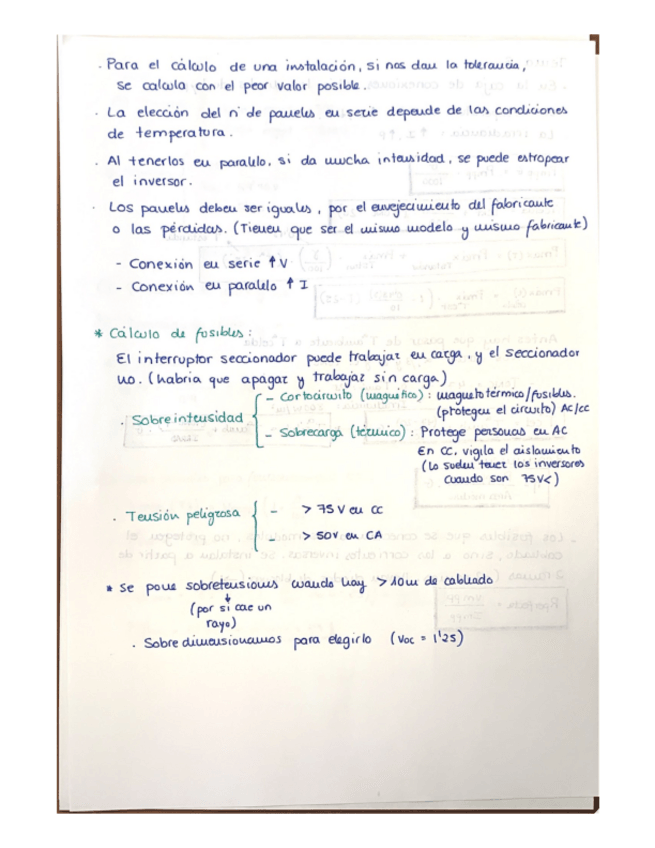 · Para el cálculo de una instalación, si nos dan la tolerancia,
se calcula con el peor valor posible.
· La elección del nº de paneles en serie depende de las condiciones
de temperatura.
· Al tenerlos en paralelo, si da mucha intensidad, se puede estropear
el inversor.
· Los paneles deben ser iguales, por el envejecimiento del fabricante
o las pérdidas. (Tienen que ser el mismo modelo y mismo fabricante)
- Conexión en serie ↑V
- Conexión en paralelo ↑ I
* Cálculo de fusibles:
El interruptor seccionador puede trabajar en carga, y el seccionador
no. (habría que apagar y trabajar sin carga)
· Sobreintensidad
- Cortocircuito (magnético): magnetotérmico/fusibles.
(protegen el circuito) AC/CC
- Sobrecarga (térmico): Protege personas en AC
En CC, vigila el aislamiento
(Lo suelen tener los inversores
cuando son 75V<)
· Tensión peligrosa
- > 75 V en CC
- > 50V en CA
* Se pone sobretensiones cuando hay > 10m de cableado
↓
(por si cae un
rayo)
· Sobredimensionamos para elegirlo (Voc = 1'25)